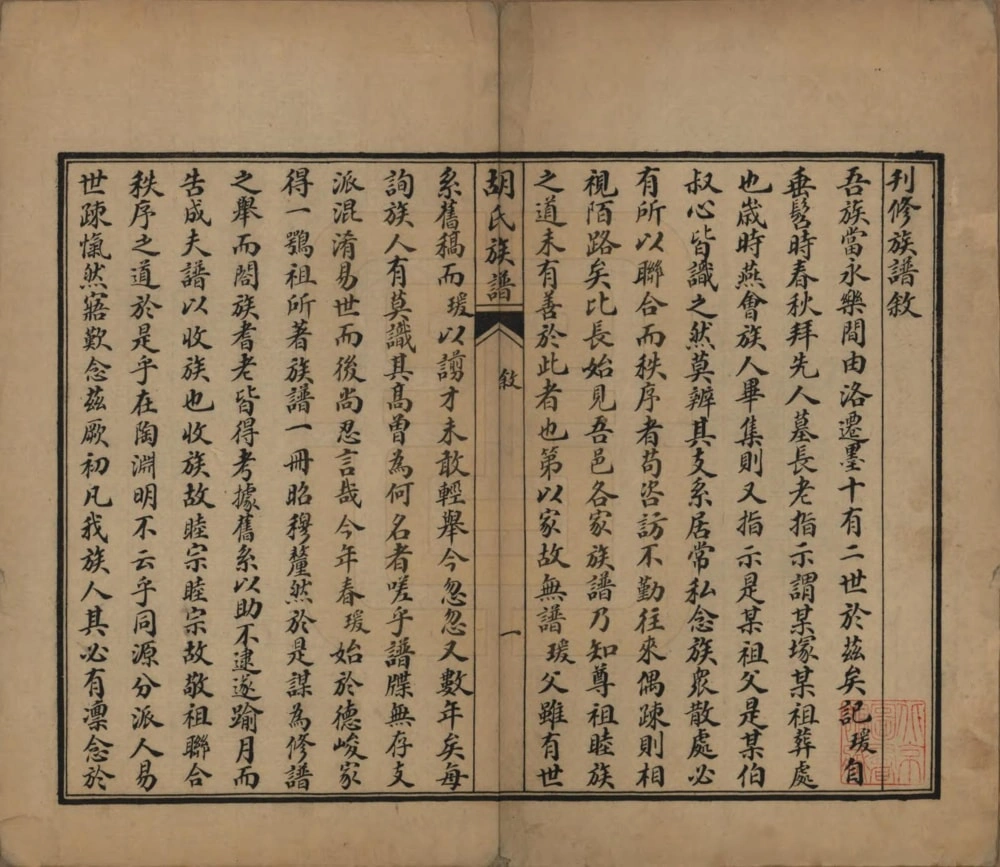 刋修族譜敘
吾族當永樂間由洛遷墨十有二世於茲矣記瑗自
垂髫時春秋拜先人墓長老指示謂某塚某祖葬處
也歲時燕會族人畢集則又指示是某祖父是某伯
叔心皆識之然莫辨其支系居常私念族眾散處必
有所以聯合而秩序者苟咨訪不勤往來偶疎則相
視陌路矣比長始見吾邑各家族譜乃知尊祖睦族
之道未有善於此者也第以家故無譜瑗父雖有世
胡氏族譜
敘
一
系舊稿而瑗以謭才未敢輕舉今忽忽又數年矣每
詢族人有莫識其高曾為何名者嗟乎譜牒無存支
派混淆易世而後尚忍言哉今年春瑗始於德峻家
得一鶚祖所著族譜一冊昭穆釐然於是謀為修譜
之舉而閤族耆老皆得考據舊系以助不逮遂踰月而
告成夫譜以收族也收族故睦宗睦宗故敬祖聯合
秩序之道於是乎在陶淵明不云乎同源分派人易
世疎愾然寤歎念茲厥初凡我族人其必有凜念於